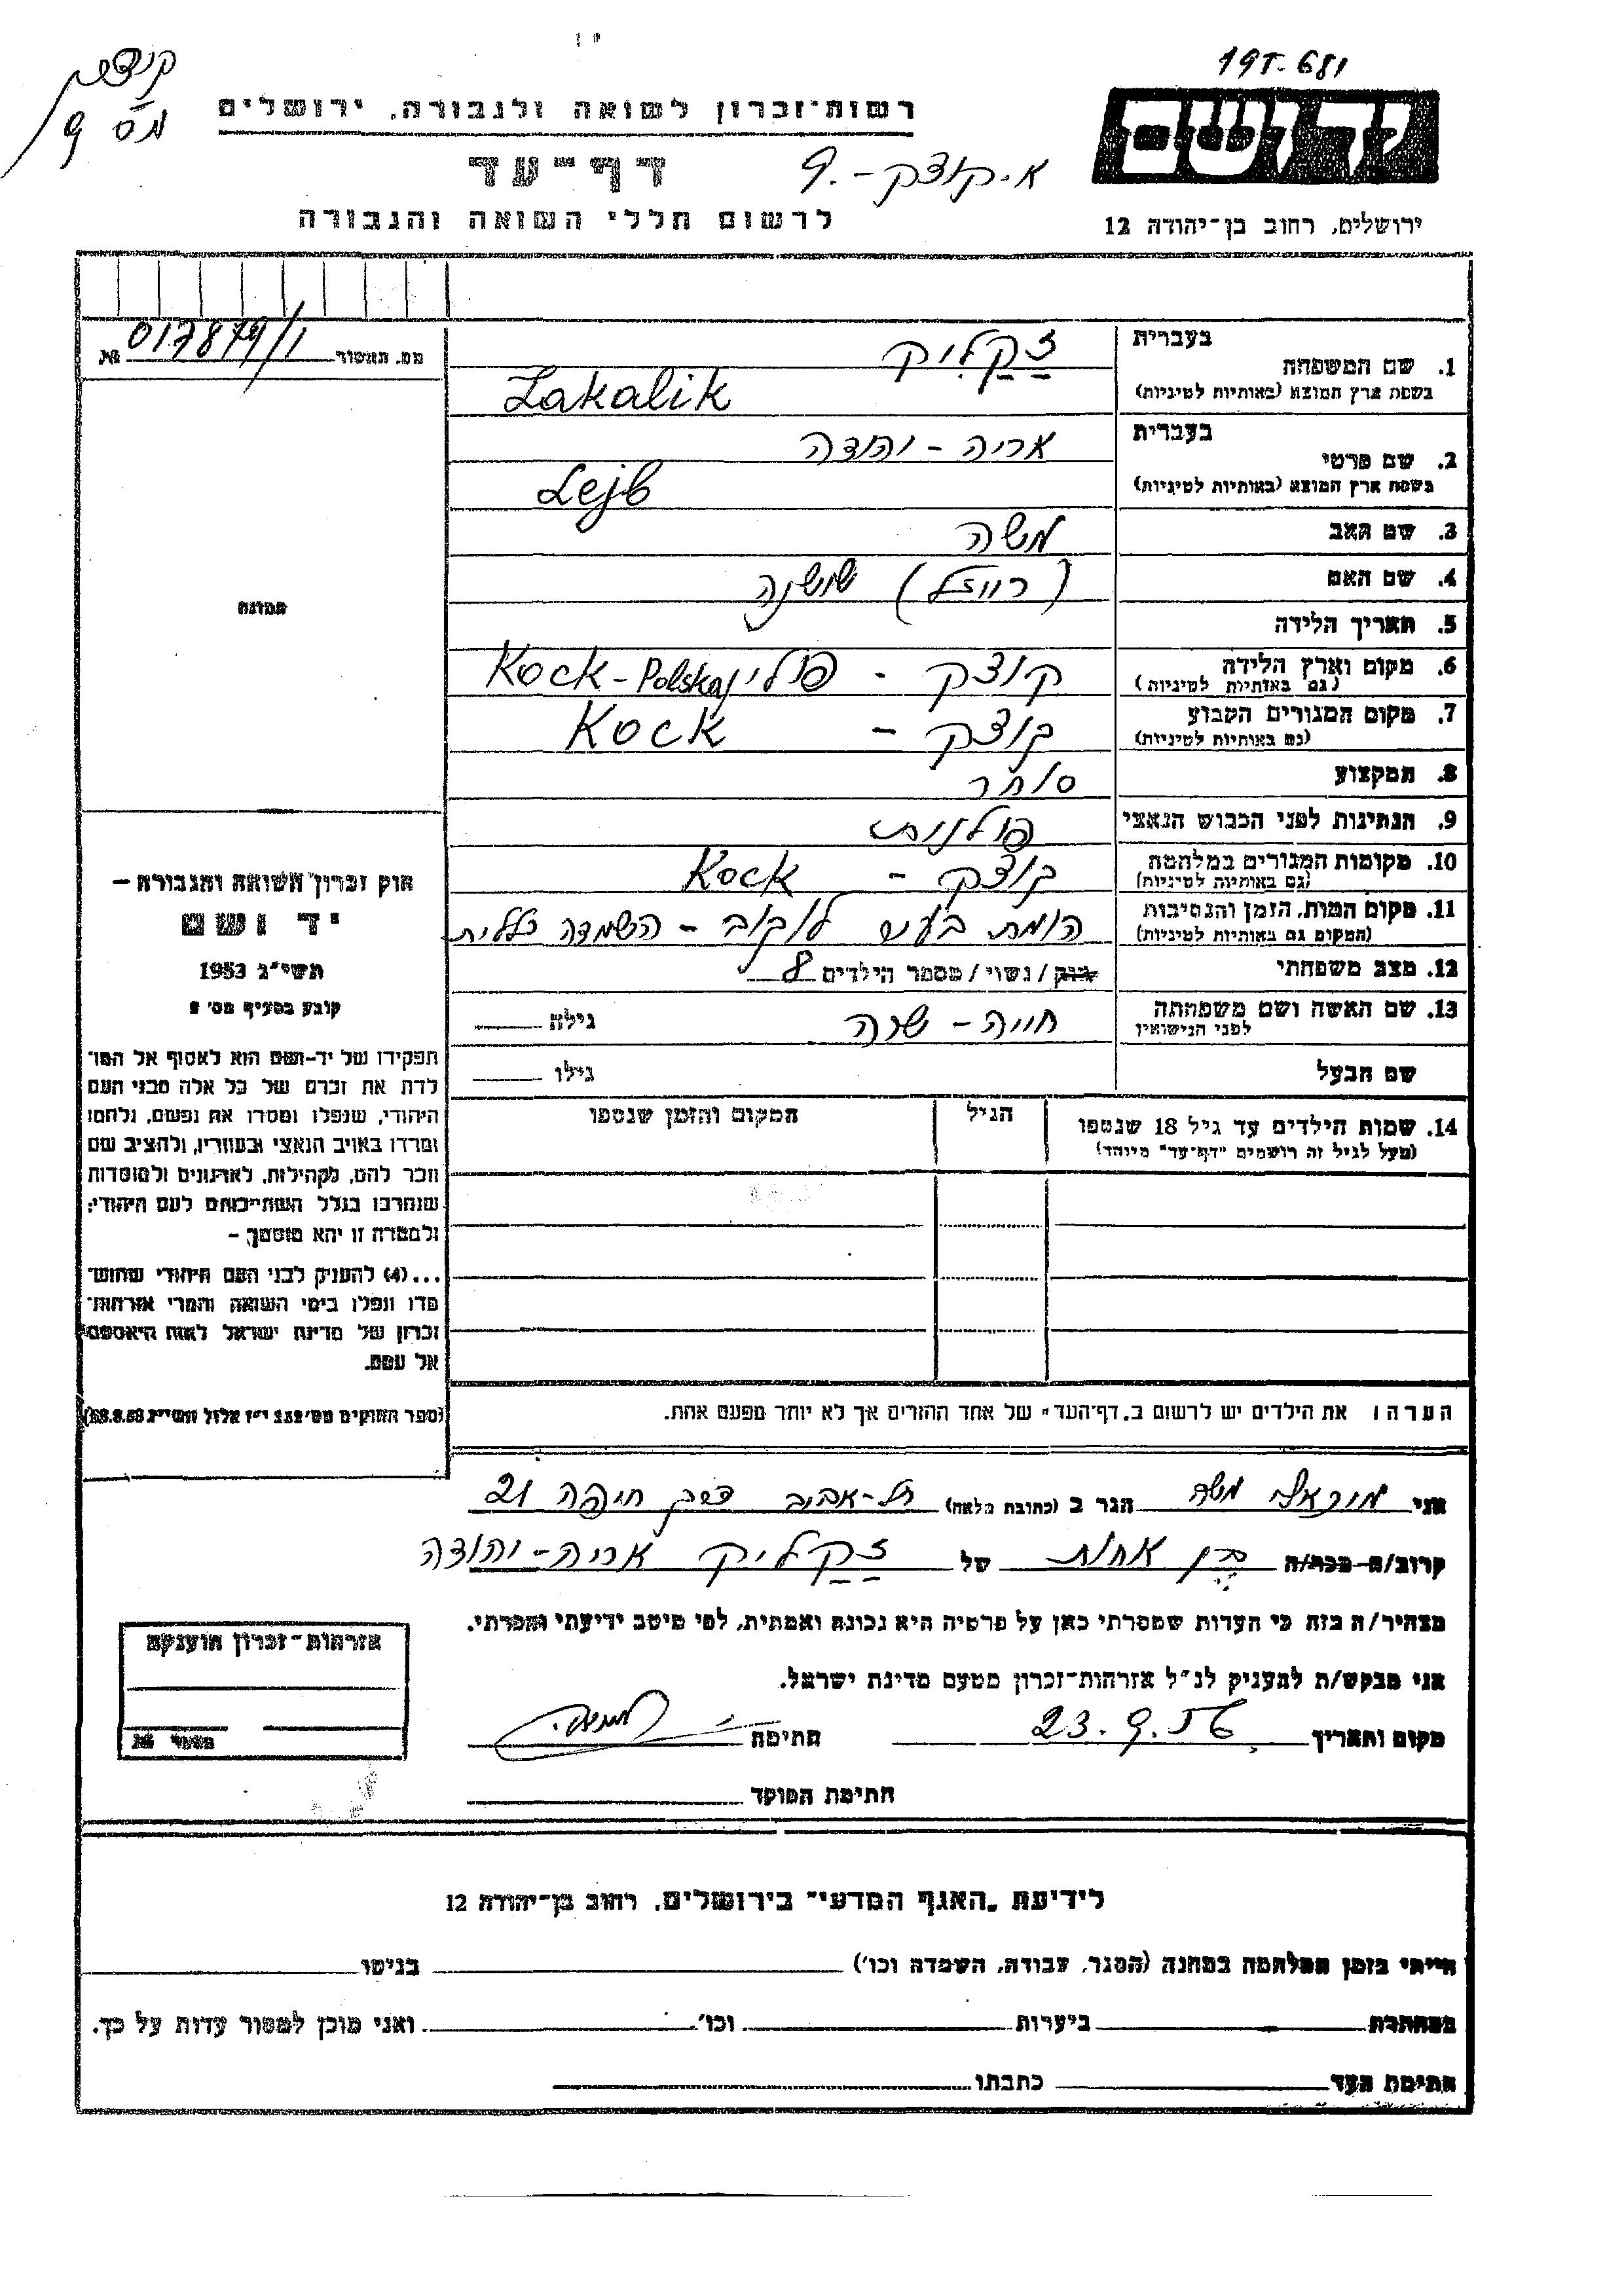 קוצק
מס 9
19I-681
רשות-זכרון לשואה ולגבורה, ירושלים
יד ושם
דף-עד
א. קוצק - 9.
לרשום חללי השואה והגבורה
ירושלים, רחוב בן-יהודה 12
מס. האשור 017879/1 №
תמונה
בעברית זַקַלִיק
1. שם המשפחה
בשפת ארץ המוצא (באותיות לטיניות) Zakalik
בעברית אריה - יהודה
2. שם פרטי
בשפת ארץ המוצא (באותיות לטיניות) Lejb
3. שם האב משה
4. שם האם (רוויזל) שושנה
5. תאריך הלידה
6. מקום וארץ הלידה קוצק - פולין Kock - Polska
(גם באותיות לטיניות)
7. מקום המגורים הקבוע קוצק - Kock
(גם באותיות לטיניות)
8. המקצוע סוחר
9. הנתינות לפני הכבוש הנאצי פולנית
10. מקומות המגורים במלחמה קוצק - Kock
(גם באותיות לטיניות)
11. מקום המות, הזמן והנסיבות הומת בעיר לוקוב - השמדה כללית
(המקום גם באותיות לטיניות)
12. מצב משפחתי רוק / נשוי / מספר הילדים 8
13. שם האשה ושם משפחתה חייה - שרה גילה
לפני הנישואין
שם הבעל גילו
14. שמות הילדים עד גיל 18 שנספו הגיל המקום והזמן שנספו
(מעל לגיל זה רושמים "דף-עד" מיוחד)
חוק זכרון השואה והגבורה –
יד ושם
תשי"ג 1953
קובע בסעיף מס' 2
תפקידו של יד-ושם הוא לאסוף אל המו־
לדת את זכרם של כל אלה מבני העם
היהודי, שנפלו ומסרו את נפשם, נלחמו
ומרדו באויב הנאצי ובעוזריו, ולהציב שם
וזכר להם, לקהילות, לארגונים ולמוסדות
שנחרבו בגלל השתייכותם לעם היהודי;
ולמטרה זו יהא מוסמך –
...(4) להעניק לבני העם היהודי שהוש־
מדו ונפלו בימי השואה והמרי אזרחות־
זכרון של מדינת ישראל לאות היאספם
אל עמם.
(ספר החוקים מס' 132 י"ז אלול תשי"ג 28.8.53)
הערה: את הילדים יש לרשום ב"דף-העד" של אחד ההורים אך לא יותר מפעם אחת.
אני משה הגר ב (כתובת מלאה) תל-אביב דרך חיפה 21
קרוב/ה מכר/ה בן אחות של זַקַליק אריה - יהודה
מצהיר/ה בזה כי העדות שמסרתי כאן על פרטיה היא נכונה ואמתית, לפי מיטב ידיעתי והכרתי.
אני מבקש/ת להעניק לנ"ל אזרחות-זכרון מטעם מדינת ישראל.
מקום ותאריך 23.9.56 חתימה
חתימת הפוקד
אזרחות-זכרון הוענקה
לידיעת "האגף המדעי" בירושלים, רחוב בן-יהודה 12
הייתי בזמן המלחמה במחנה (הסגר, עבודה, השמדה וכו') בגיטו
במחתרת ביערות וכו' ואני מוכן למסור עדות על כך.
חתימת העד כתבתו